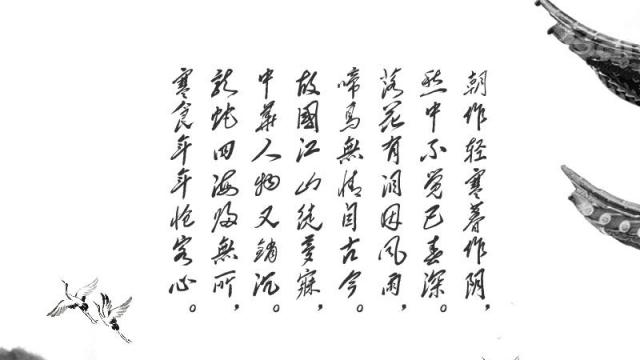 朝作轻寒暮作阴，
愁中不觉已春深。
落花有泪因风雨，
啼鸟無情自古今。
故國江山徒夢寐，
中華人物又銷沉。
龍蛇四海歸無所，
寒食年年怆客心。